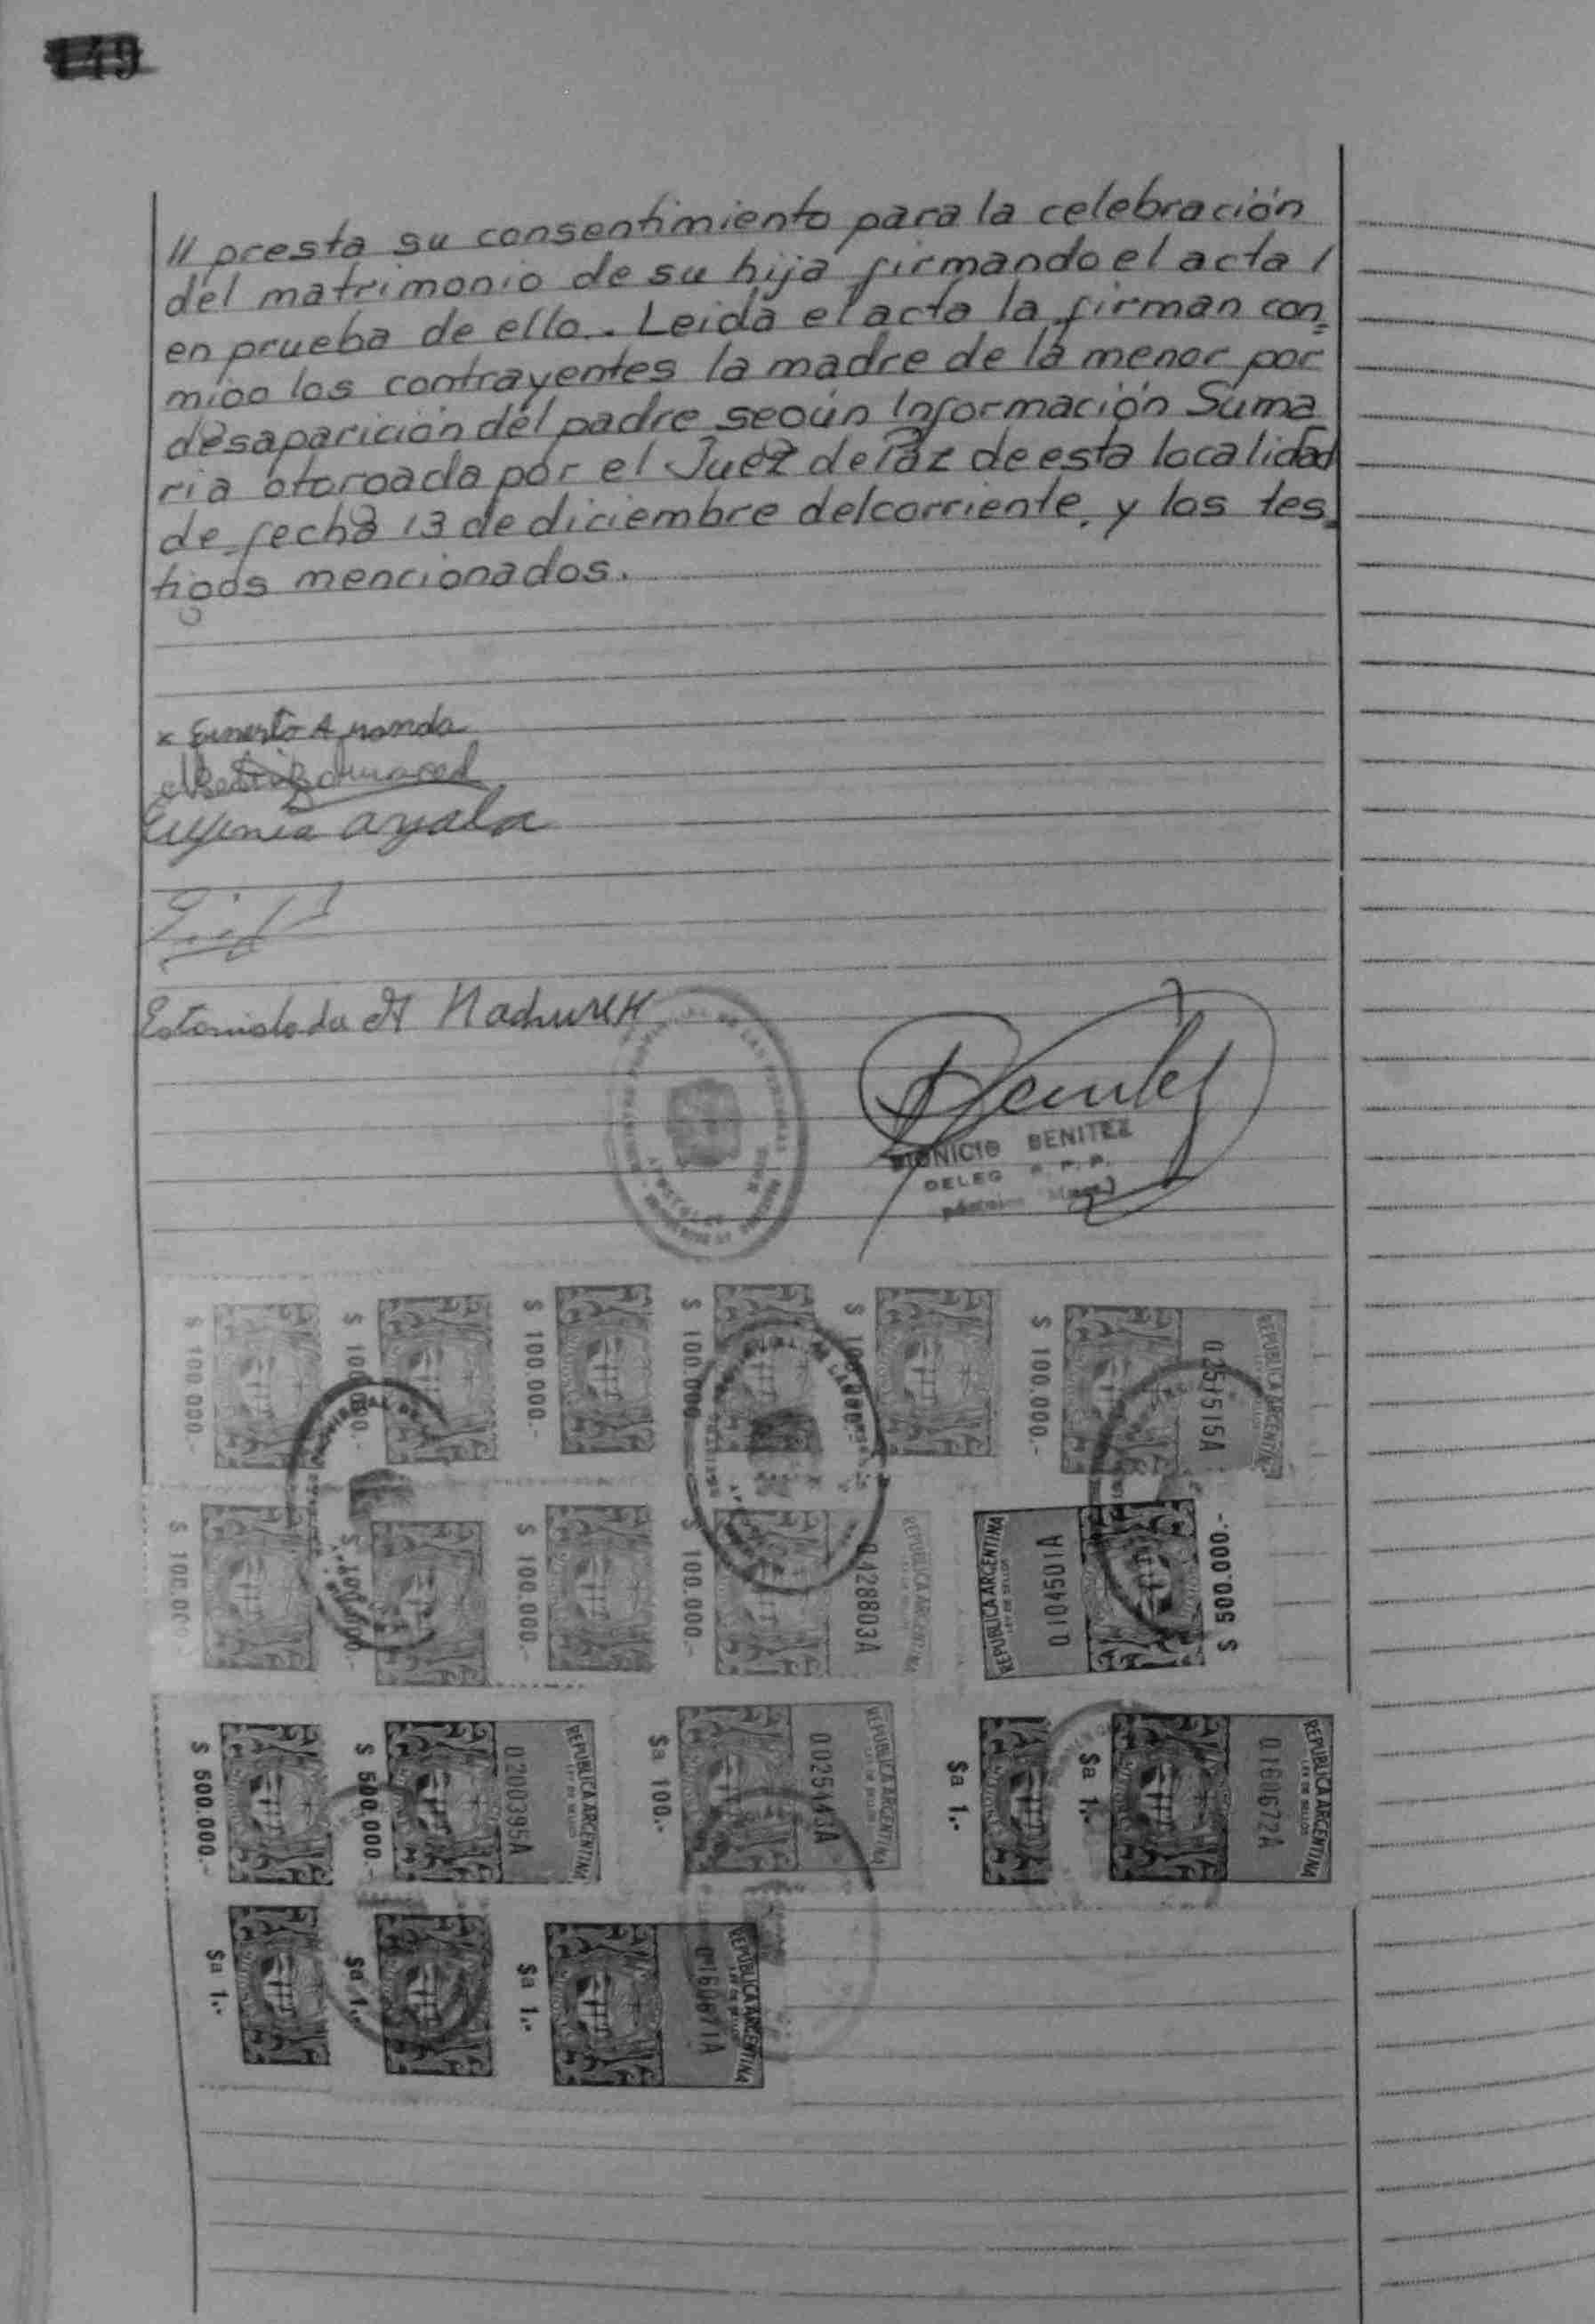 149
// presta su consentimiento para la celebración
del matrimonio de su hija firmando el acta /
en prueba de ello. Leida el acta la firman con=
migo los contrayentes la madre de la menor por
desaparición del padre según Información Suma
ria otorgada por el Juez de Paz de esta localidad
de fecha 13 de diciembre del corriente, y los tes=
tigos mencionados.
Ernesto A
Eugenia Ayala
DIONICIO BENITEZ
DELEG R. P. P.
$ 100.000.-
$ 100.000.-
$ 100.000.-
$ 100.000.-
$ 100.000.-
$ 100.000.-
0251515A
REPUBLICA ARGENTINA
$ 100.000
$ 100.000.-
$ 100.000.-
$ 100.000.-
0428803A
REPUBLICA ARGENTINA
REPUBLICA ARGENTINA
LEY DE SELLOS
0104501A
$ 500.000.-
$ 500.000.-
$ 500.000.-
0200395A
REPUBLICA ARGENTINA
LEY DE SELLOS
$a 100.-
REPUBLICA ARGENTINA
LEY DE SELLOS
$a 1.-
$a 1.-
0160672A
REPUBLICA ARGENTINA
LEY DE SELLOS
$a 1.-
$a 1.-
$a 1.-
0160671A
REPUBLICA ARGENTINA